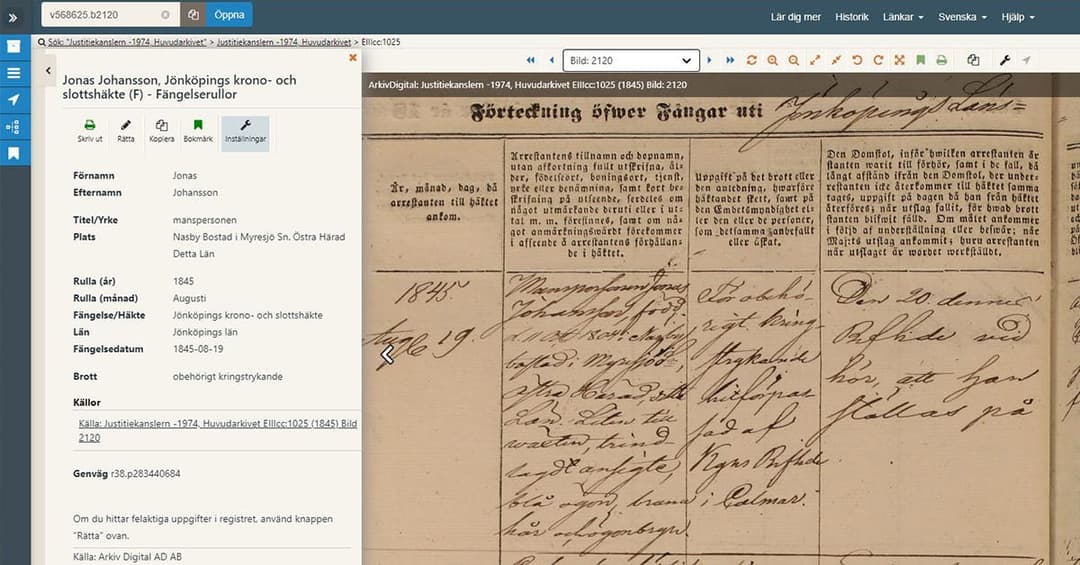 v568625.b2120
Öppna
Lär dig mer
Historik
Länkar
Svenska
Hjälp
Sök: "Justitiekanslern -1974, Huvudarkivet" > Justitiekanslern -1974, Huvudarkivet > EIIIcc:1025
Bild: 2120
Jonas Johansson, Jönköpings krono- och
slottshäkte (F) - Fängelserullor
Skriv ut
Rätta
Kopiera
Bokmärk
Inställningar
Förnamn Jonas
Efternamn Johansson
Titel/Yrke manspersonen
Plats Nasby Bostad i Myresjö Sn. Östra Härad
Detta Län
Rulla (år) 1845
Rulla (månad) Augusti
Fängelse/Häkte Jönköpings krono- och slottshäkte
Län Jönköpings län
Fängelsedatum 1845-08-19
Brott obehörigt kringstrykande
Källor
Källa: Justitiekanslern -1974, Huvudarkivet EIIIcc:1025 (1845) Bild
2120
Genväg r38.p283440684
Om du hittar felaktiga uppgifter i registret, använd knappen
"Rätta" ovan.
Källa: Arkiv Digital AD AB
ArkivDigital: Justitiekanslern -1974, Huvudarkivet EIIIcc:1025 (1845) Bild: 2120
Förteckning öfwer Fångar uti Jönköpings Läns=
År, månad, dag, då
arrestanten till häktet
ankom.
Arrestantens tillnamn och dopnamn,
utan afkortning fullt utskrifna, ål-
der, födelseort, boningsort, tjenst,
yrke eller benämning, samt kort be-
skrifning på utseende, serdeles om
något utmärkande deruti eller i ut-
tal m. m. förefinnes, samt om nå-
got anmärkningswärdt förekommer
i afseende å arrestantens förhållan-
de i häktet.
Uppgift på det brott eller
den anledning, hwarföre
häktandet skett, samt på
den Embetsmyndighet el-
ler den eller de personer,
som detsamma anbefallt
eller äskat.
Den Domstol, inför hwilken arrestanten är
stånden warit till förhör, samt i de fall, då
långt afstånd ifrån den Domstol, der under-
restanten icke återkommer till häktet samma
tages, uppgift på dagen då han från häktet
återföres; när utslag fallit, för hwad brott
stanten blifwit fälld. Om målet ankommer
i följd af underställning eller beswär; när
Maj:ts utslag ankommit; huru arrestanten
när utslaget är wordet werkställdt.
1845.
Aug 19.
Manspersonen Jonas
Johansson, född
bostad i Myresjö Sn,
Östra Härad, detta
Län. Liten till
waexten, trind-
lagdt ansigte,
blå ögon, bruna
hår och ögonbryn.
För obehö-
rigt kring-
strykande
hitförpas-
sad af
Kgns Befhde
i Calmar.
Den 20. dennes
Befhde vid
hör, att han
ställas på